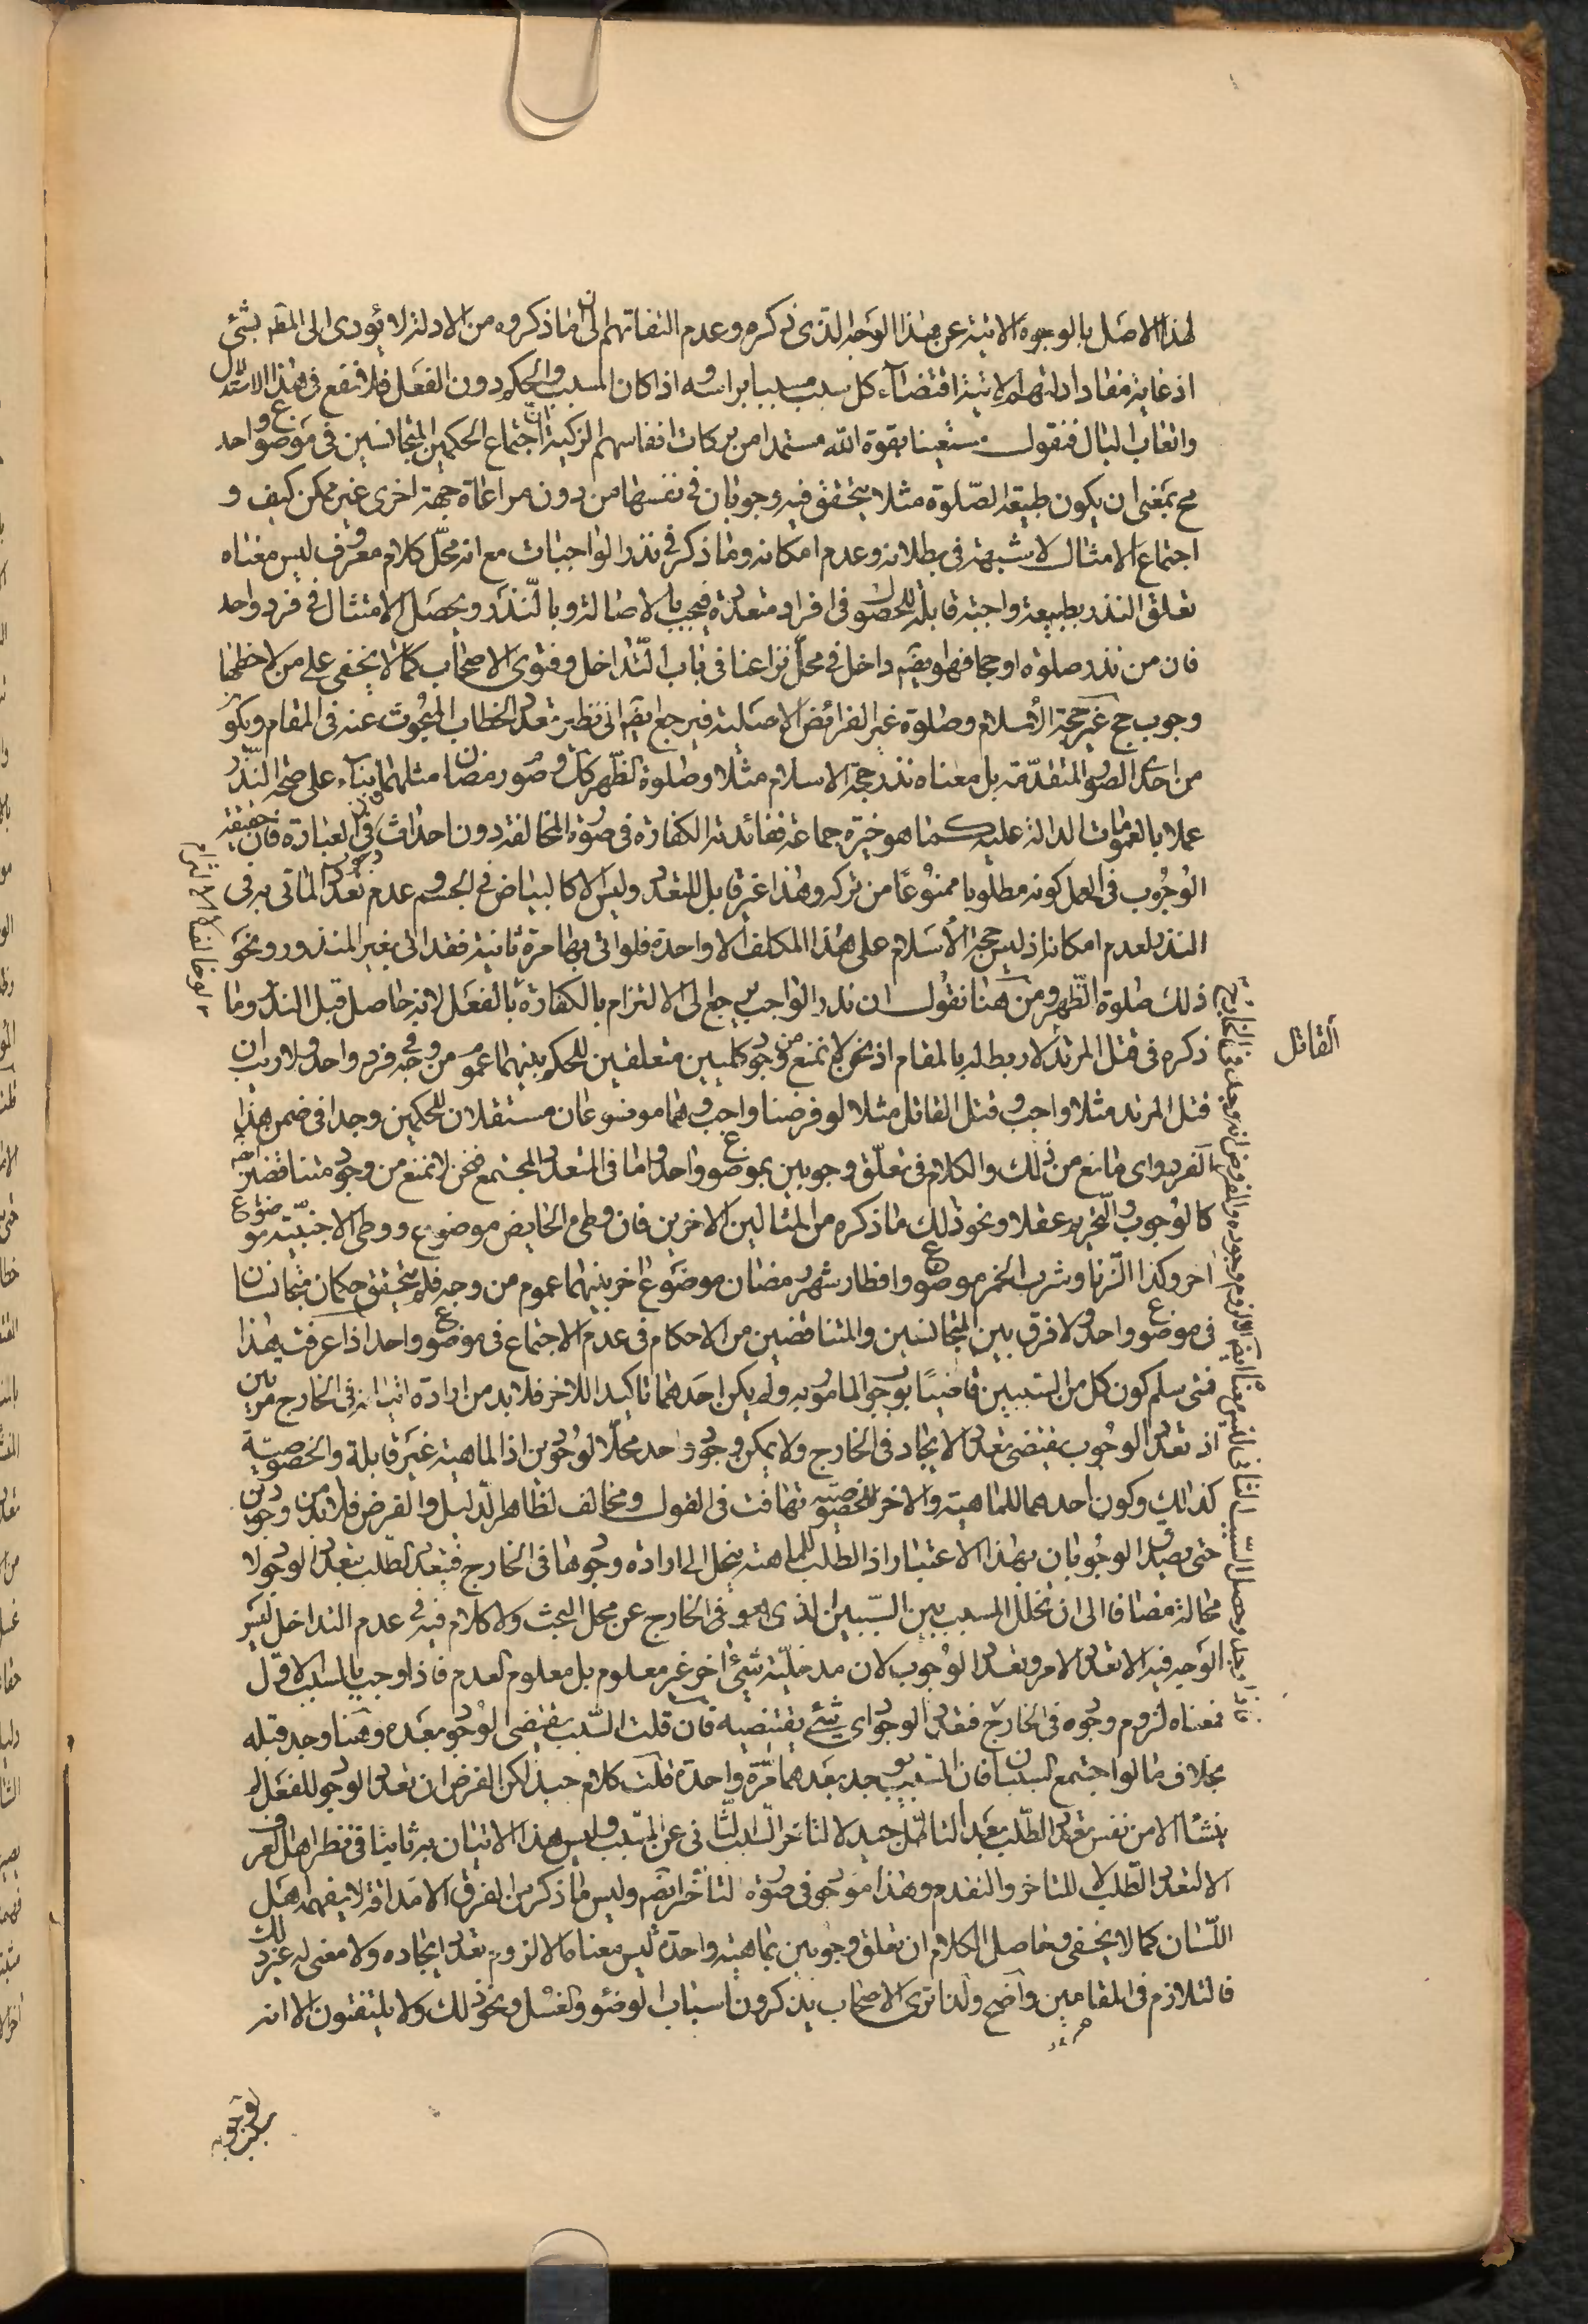 لهذا الاصل بالوجوه الاتية عن هذا الوجه الذى نذكره وعدم التفاتهم الى ان ما ذكروه من الادلة لا يؤدى الى المقصد بشئ
اذ غاية مفاد ادلتهم الاتية اقتضاء كل سبب مسببا براسه واذا كان المسبب الحكم دون الفعل فلا تنفع فى هذا الاستدلال
واتعاب البال فنقول مستعينا بقوة الله مستمدا من بركات انفاسهم الزكية ان اجتماع الحكمين المتجانسين فى موضوع واحد
مح بمعنى ان يكون طبيعة الصلوة مثلا يتحقق فيه وجوبان فى نفسها من دون مراعاة جهة اخرى غير ممكن كيف و
اجتماع الامثال لا شبهة فى بطلانه وعدم امكانه وما ذكر فى نذر الواجبات مع انه محل كلام معروف ليس معناه
تعلق النذر بطبيعة واجبة قابلة للحصول فى افراد متعددة فيجب بالاصالة وبالنذر ويحصل الامتثال فى فرد واحد
فان من نذر صلوة او حجا فهو ايضا داخل فى محل نزاعنا فى باب التداخل وفتوى الاصحاب كما لا يخفى على من لاحظها
وجوب حج غير حجة الاسلام وصلوة غير الفرائض الاصلية فيرجع ايضا الى نظير تعدد الخطاب المبحوث عنه فى المقام ويكون
من احدى الصور المتقدمة بل معناه نذر حجة الاسلام مثلا وصلوة الظهر كك وصوم رمضان مثلهما بناء على صحة النذر
عملا بالعمومات الدالة عليه كما هو خيرة جماعة ففائدته الكفارة فى صورة المخالفة دون احداث فى العبادة فان حقيقة
الوجوب فى العمل كونه مطلوبا ممنوعا من تركه وهذا غير قابل للتعدد وليس الا كالبياض فى الجسم وعدم تعدد الماتى به فى
النذر لعدم امكانه اذ ليس حجة الاسلام على هذا المكلف الا واحدة فلو اتى بها مرة ثانية فقد اتى بغير المنذور ونحو
ذلك صلوة الظهر ومن هنا نقول ان نذر الواجب يرجع الى الالتزام بالكفارة بالفعل لانه حاصل قبل النذر وما
ذكره فى قتل المرتد لا ربط له بالمقام اذ نحن لا نمنع من وجود كليين متعلقين للحكم بينهما عموم من وجه فى فرد واحد ولا ريب ان
قتل المرتد مثلا واجب وقتل القاتل مثلا لو فرضنا واجب وهما موضوعان مستقلان للحكمين وجدا فى ضمن هذا
الفرد واى مانع من ذلك والكلام فى تعلق وجوبين بموضوع واحد واما فى التعدد المجتمع فنحن لا نمنع من وجود متناقضين
كالوجوب والتحريم عقلا ونحو ذلك ما ذكره من المثالين الاخرين فان وطى الحايض موضوع ووطى الاجنبية موضوع
اخر وكذا الزنا وشرب الخمر موضوع وافطار شهر رمضان موضوع اخر بينهما عموم من وجه فلم يتحقق حكمان متجانسان
فى موضوع واحد ولا فرق بين المتجانسين والمتناقضين من الاحكام فى عدم الاجتماع فى موضوع واحد اذا عرفت هذا
فمتى سلم كون كل من السببين قاضيا بوجوب المامور به ولم يكن احدهما تاكيدا للاخر فلا بد من ارادة اتيانه فى الخارج مرتين
اذ تعدد الوجوب يقتضى تعدد الايجاد فى الخارج ولا يمكن وجود واحد محلا لوجوبين اذ الماهية غير قابلة والخصوصية
كذلك وكون احدهما للماهية والاخر للخصوصية تهافت فى القول ومخالف لظاهر الدليل والفرض فلا بد من وجودين
حتى يصير الوجوبان بهذا الاعتبار اذ الطلب للماهية ينحل الى ارادة وجودها فى الخارج فتعدد الطلب بتعدد الوجود لا
محالة مضافا الى ان تخلل المسبب بين السببين الذى هو فى الخارج عن محل البحث ولا كلام فيه فى عدم التداخل ليس
الوجه فيه الا تعدد الامر وتعدد الوجوب لان مدخلية شئ اخر غير معلوم بل معلوم العدم فاذا وجب بالسبب الاول
فمعناه لزوم وجوده فى الخارج فتعدد الوجود اى شئ يقتضيه فان قلت السبب يقتضى الوجود بعده وهنا وجد قبله
بخلاف ما لو اجتمع السببان فان المسبب يوجد بعدهما مرة واحدة قلت كلام جيد لكن الفرض ان تعدد الوجود للفعل لم
ينشا الا من نفس تعدد الطلب بعد التامل جيد لا لتاخر السبب الثانى عن المسبب وليس هذا الاتيان به ثانيا فى نظر اهل العرف
الا لتعدد الطلب لا للتاخر والتقدم وهذا موجود فى صورة التاخر ايضا وليس ما ذكر من الفرق الا مداقة لا يفهمه اهل
اللسان كما لا يخفى وحاصل الكلام ان تعلق وجوبين بماهية واحدة ليس معناه الا لزوم تعدد ايجاده ولا معنى له غير ذلك
فالتلازم فى المقامين واضح ولذا ترى الاصحاب يذكرون اسباب الوضوء والغسل ونحو ذلك ولا يلتفتون الا انه
القاتل